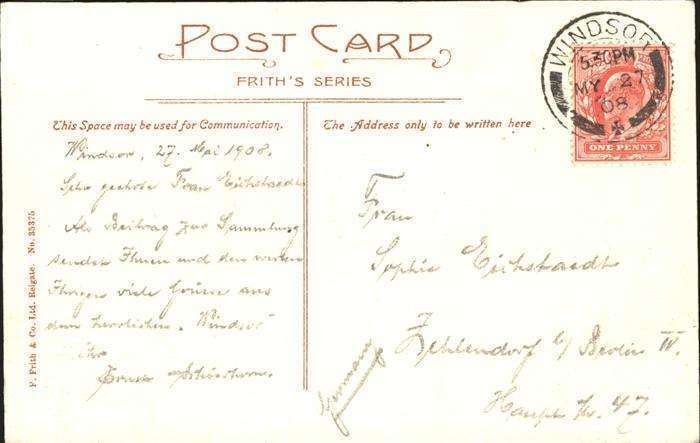 POST CARD
FRITH'S SERIES
This Space may be used for Communication.
The Address only to be written here
WINDSOR
5.30 PM
MY 27
08
ONE PENNY
Windsor, 27. Mai 1908.
Sehr geehrte Frau Eichstaedt
Als Beitrag zur Sammlung
sendet Ihnen und den werten
Ihrigen viele Grüsse aus
dem herrlichen Windsor
Ihr
Frau
Sophie Eichstaedt
Zehlendorf b/ Berlin W.
Haupt 47.
Germany
F. Frith & Co. Ltd. Reigate. No. 35375